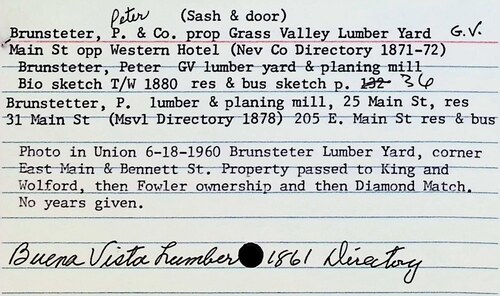 Peter (Sash & door)
Brunsteter, P. & Co. prop Grass Valley Lumber Yard G.V.
Main St opp Western Hotel (Nev Co Directory 1871-72)
Brunsteter, Peter GV lumber yard & planing mill
Bio sketch T/W 1880 res & bus sketch p. 132 36
Brunstetter, P. lumber & planing mill, 25 Main St, res
31 Main St (Msvl Directory 1878) 205 E. Main St res & bus
Photo in Union 6-18-1960 Brunsteter Lumber Yard, corner
East Main & Bennett St. Property passed to King and
Wolford, then Fowler ownership and then Diamond Match.
No years given.
Buena Vista Lumber 1861 Directory